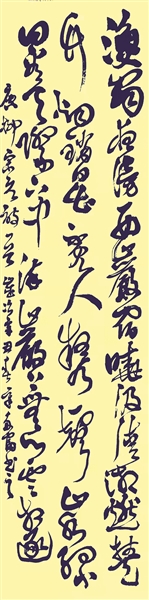 漁翁夜傍西巖宿曉汲清湘燃楚
竹烟銷日出不見人欸乃一聲山水綠
回看天際下中流巖上無心雲相逐
唐柳宗元詩一首